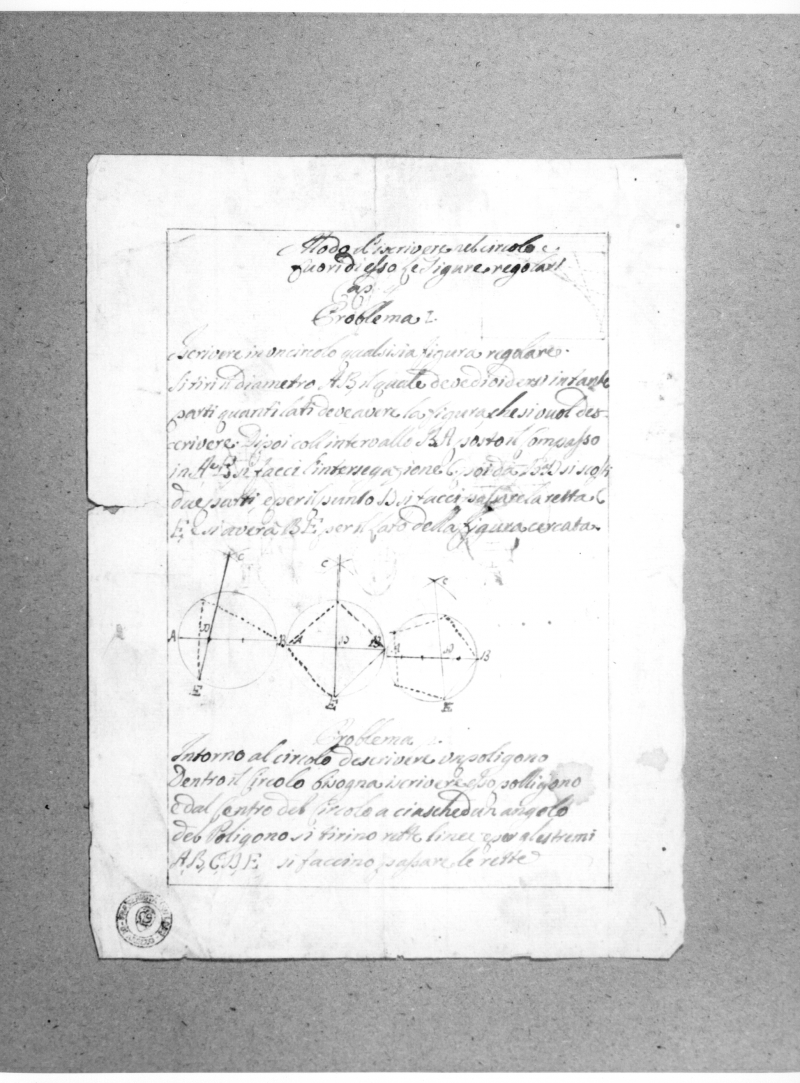 Modo d'iscrivere nel circolo e
fuori di esso le figure regolari
Cap.
Problema I.
Iscrivere in un circolo qualsivia figura regolare.
Si tiri il diametro AB, il quale deve dividersi in tante
parti quanti lati deve avere la figura che si vuol des-
crivere. Di poi coll'intervallo BA, posto il Compasso
in A e B, si facci l'intersegazione C, poi da
due punti e per il punto D, si facci passare la retta C
E, e si averà BE, per il lato della figura cercata.
C
C
C
A D B A D B A D B
E
E
E
Problema
Intorno al circolo descrivere un poligono
Dentro il Circolo bisogna iscrivere esso polligono
e dal Centro del Circolo a ciaschedun angolo
del Poligono si tirino rette linee e per estremi
A, B, C, D, E si faccino passare le rette